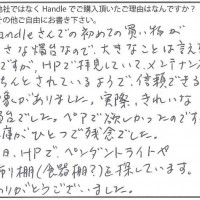 他社ではなく Handle でご購入頂いたご理由はなんですか？
その他ご自由にお書き下さい。
Handleさんでの初めての買い物が
さな燭台なので、大きなことは言え
ですが、HPで拝見していて、メンテナン
ちんとされているようで、信頼できる
象がありました。実際、きれいな
台でした。ペアで欲しかったのです
庫がひとつで残念でした。
日、HPで、ペンダントライトや
吊り棚(食器棚？)を探しています。
りがとうございました。